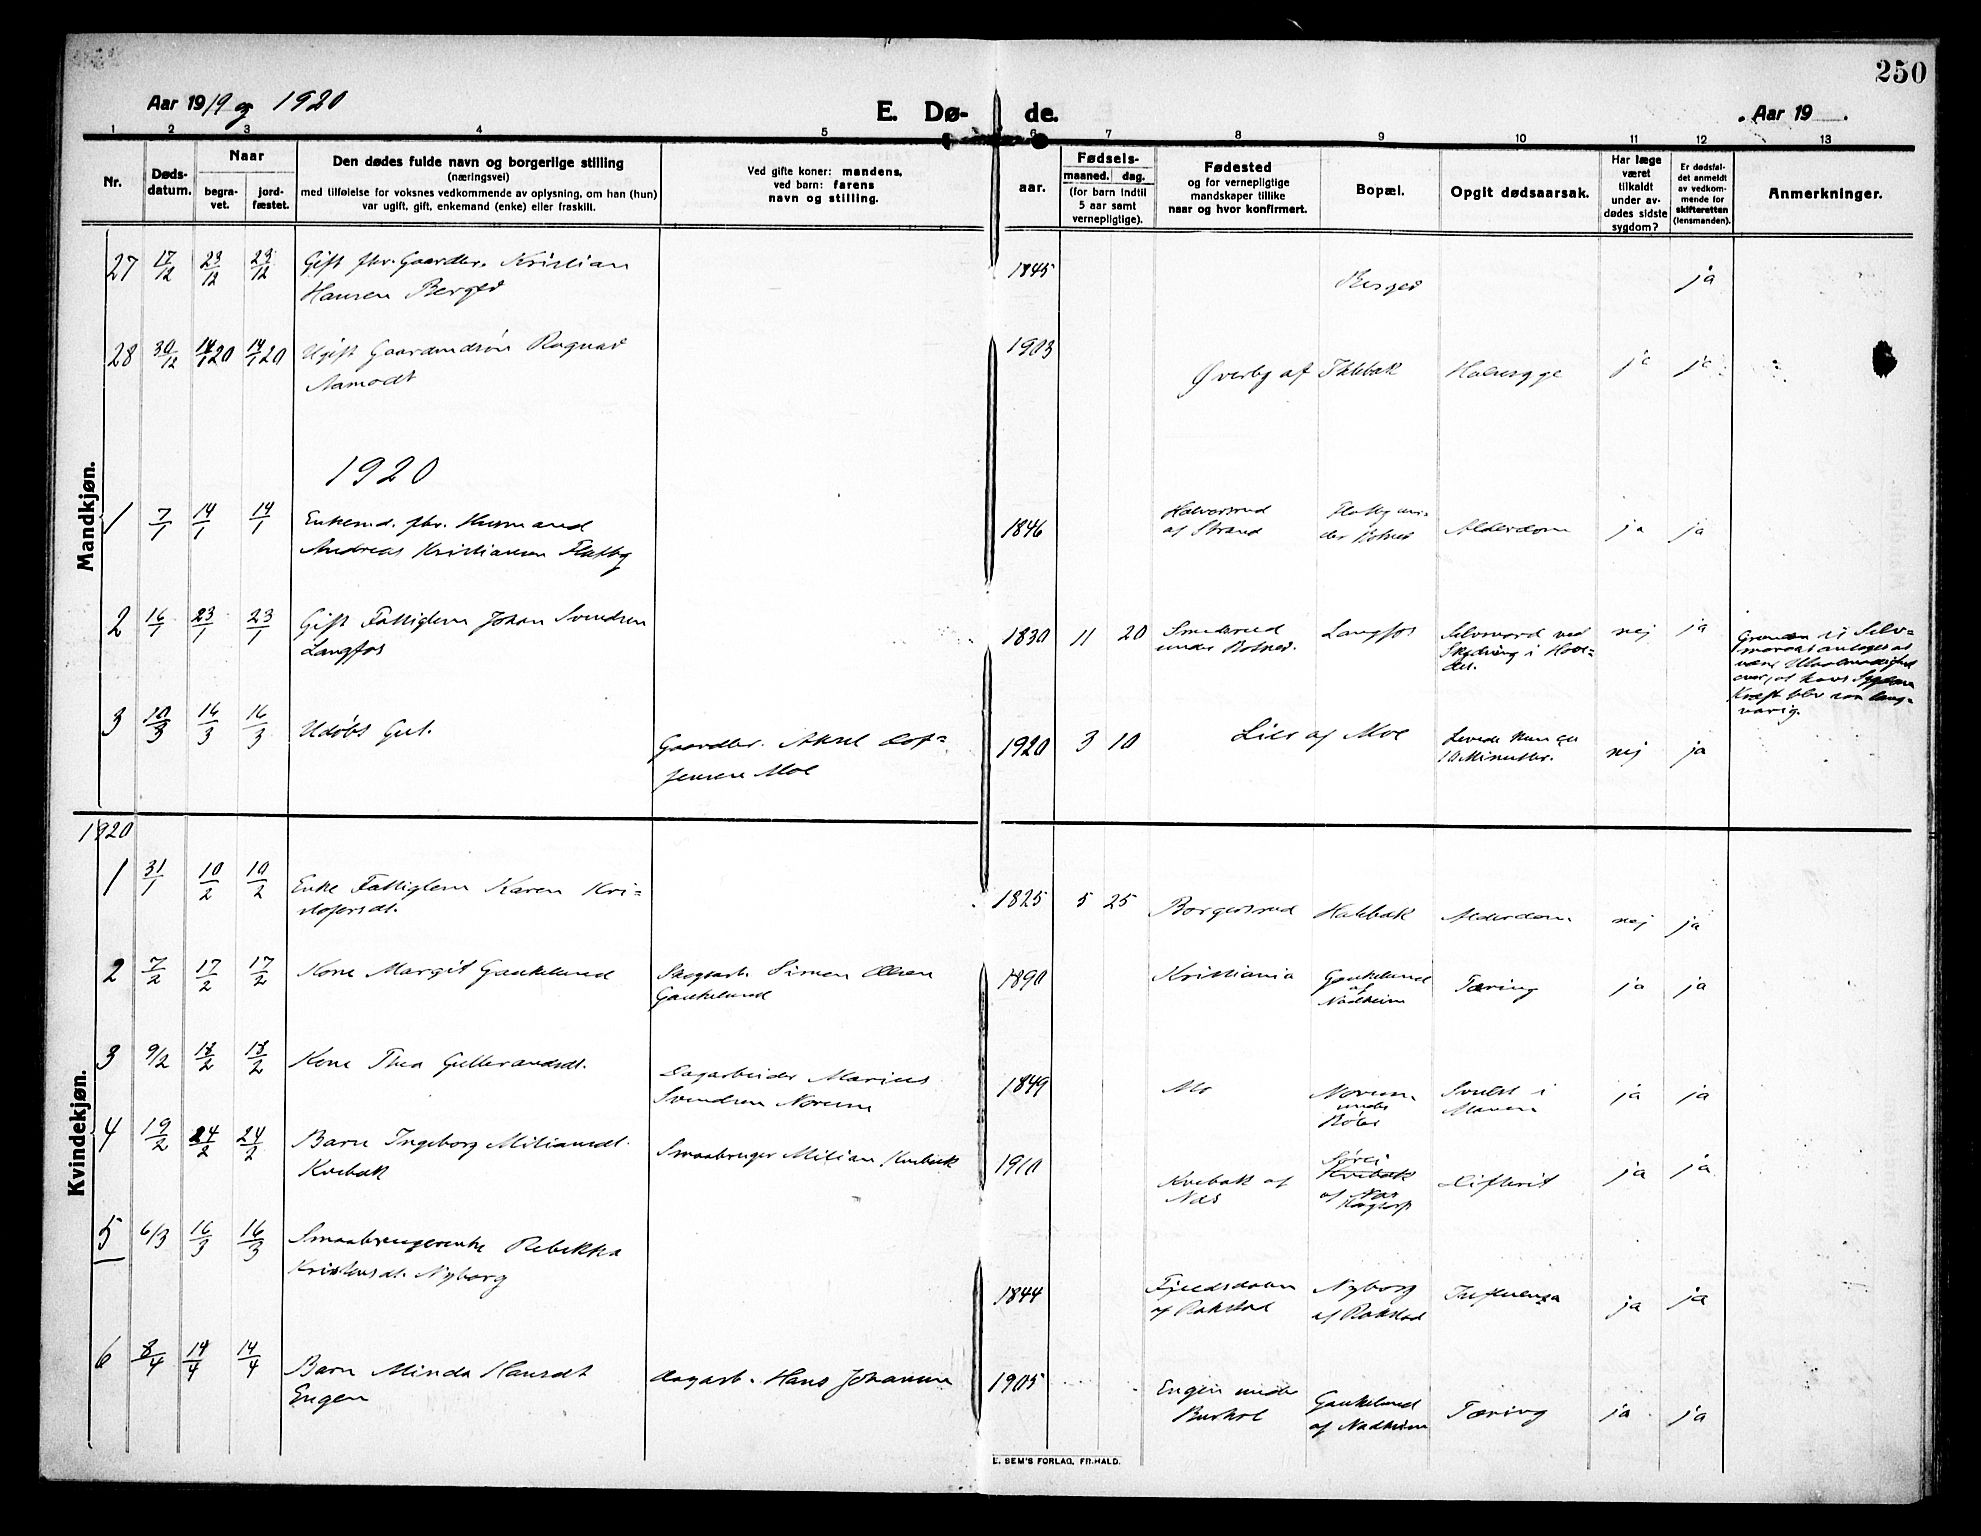 250
Aar 1919 og 1920
E. Dø-
de.
Aar 19
1 2 3 4 5 6 7 8 9 10 11 12 13
Nr.
Døds-
datum.
Naar
begra-
vet.
jord-
fæstet.
Den dødes fulde navn og borgerlige stilling
(næringsvei)
med tilføielse for voksnes vedkommende av oplysning, om han (hun)
var ugift, gift, enkemand (enke) eller fraskilt.
Ved gifte koner: mandens,
ved børn: farens
navn og stilling.
aar.
Fødsels-
maaned. dag.
(for barn indtil
5 aar samt
vernepligtige).
Fødested
og for vernepligtige
mandskaper tillike
naar og hvor konfirmert.
Bopæl.
Opgit dødsaarsak.
Har læge
været
tilkaldt
under av-
dødes sidste
sygdom?
Er dødsfal-
det anmeldt
av vedkom-
mende for
skifteretten
(lensmanden).
Anmerkninger.
Mandkjøn.
27 17/12 23/12 23/12 Gift fhv. Gaardbr. Kristian
Hansen Berged
1845 Berged ja
28 30/12 14/1 20 14/1 20 Ugift Gaardmdsøn Ragnar
Aamodt
1903 Øverby af Ihlebæk ja ja
1920
1 7/1 14/1 14/1 Enkemd. fhv. Husmand
Andreas Kristiansen Flatby
1846 Halversrud
af Strand
Flatby un-
der
Alderdom ja ja
2 16/1 23/1 23/1 Gift Fattiglem Johan Svendsen
Langfos
1830 11 20 Smedsrud
under
Langfos
Selvmord ved
Skydning i Hove-
det.
nej ja
Grunden til Selv-
mordet antages at
være
over, at hans
Kraft blev saa lang-
varig.
3 10/3 16/3 16/3 Udøbt Gut.
Gaardbr. Aksel Lof-
Moe
1920 3 10 Lier af Moe
Levede kun ca
10 Minutter.
nej ja
Kvindekjøn.
1920
1 31/1 10/2 10/2 Enke Fattiglem Karen Kri-
stofersdt.
1825 5 25 Borgersrud Alderdom nej ja
2 7/2 17/2 17/2 Kone Margit Gaukelund
Skogsarb. Simen Olsen
Gaukelund
1890 Kristiania
Gaukelund
af
Nadheim
Tæring ja ja
3 9/2 18/2 18/2 Kone Thea Gulbrandsdt.
Dagarbeider Marius
Svendsen Norum
1849 Mo
Norum
under
Svulst i
Maven
ja ja
4 19/2 24/2 24/2 Barn Ingeborg Miliansdt.
Kvebæk
Smaabruger Milian Kvebæk
1910 Kvebæk af
Næs
Kvebæk
af Næs
Difterit ja ja
5 6/3 16/3 16/3 Smaabrugerenke Rebekka
Nyborg
1844 Fjeldsdalen
af Rakstad
Nyborg
af Rakstad
Influensa ja ja
6 8/4 14/4 14/4 Barn Minda Hansdt
Engen
Dagarb. Hans Johansen
1905 Engen under
Gaukelund
af Nadheim
Tæring ja ja
E. SEM'S FORLAG, FR.HALD.